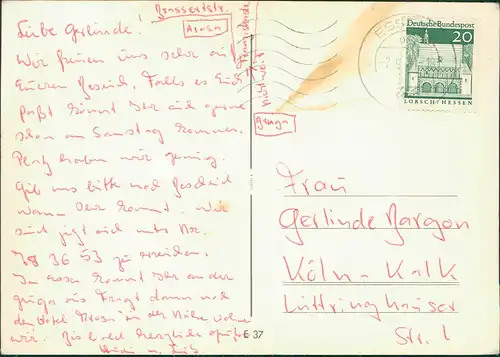 Brassertstr.
Liebe Gerlinde!
Arosa
Wir freuen uns sehr auf
Eueren Besuch. Falls es Euch
paßt könnt Ihr auch gerne
schon am Samstag kommen.
Platz haben wir genug.
Gib uns bitte noch Bescheid
wann Ihr kommt. Wir
sind jetzt auch unter Nr.
78 36 53 zu erreichen.
Ihr könnt Ihr an der
Gruga aus. Fragt dann nach
den Hotel Arosa in der Nähe wohnen
wir. Bis bald herzliche Grüße
Heidi u.
Gruga
ESSEN
Deutsche Bundespost
20
LORSCH/HESSEN
Frau
Gerlinde Bargon
Köln-Kalk
Lüttringhauser
Str. 1
E 37